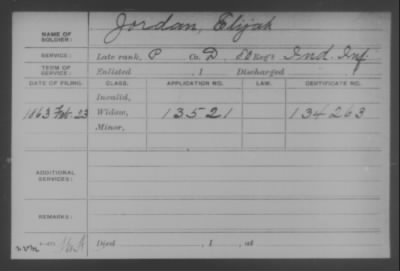 Jordan, Elijah
NAME OF SOLDIER:
SERVICE: Late rank, P Co. D, Reg't Ind. Inf.
TERM OF SERVICE: Enlisted , 1 Discharged
DATE OF FILING. CLASS. APPLICATION NO. LAW. CERTIFICATE NO.
Invalid,
1863 Feb. 23 Widow, 13521 134263
Minor,
ADDITIONAL SERVICES:
REMARKS:
Died , 1 , at